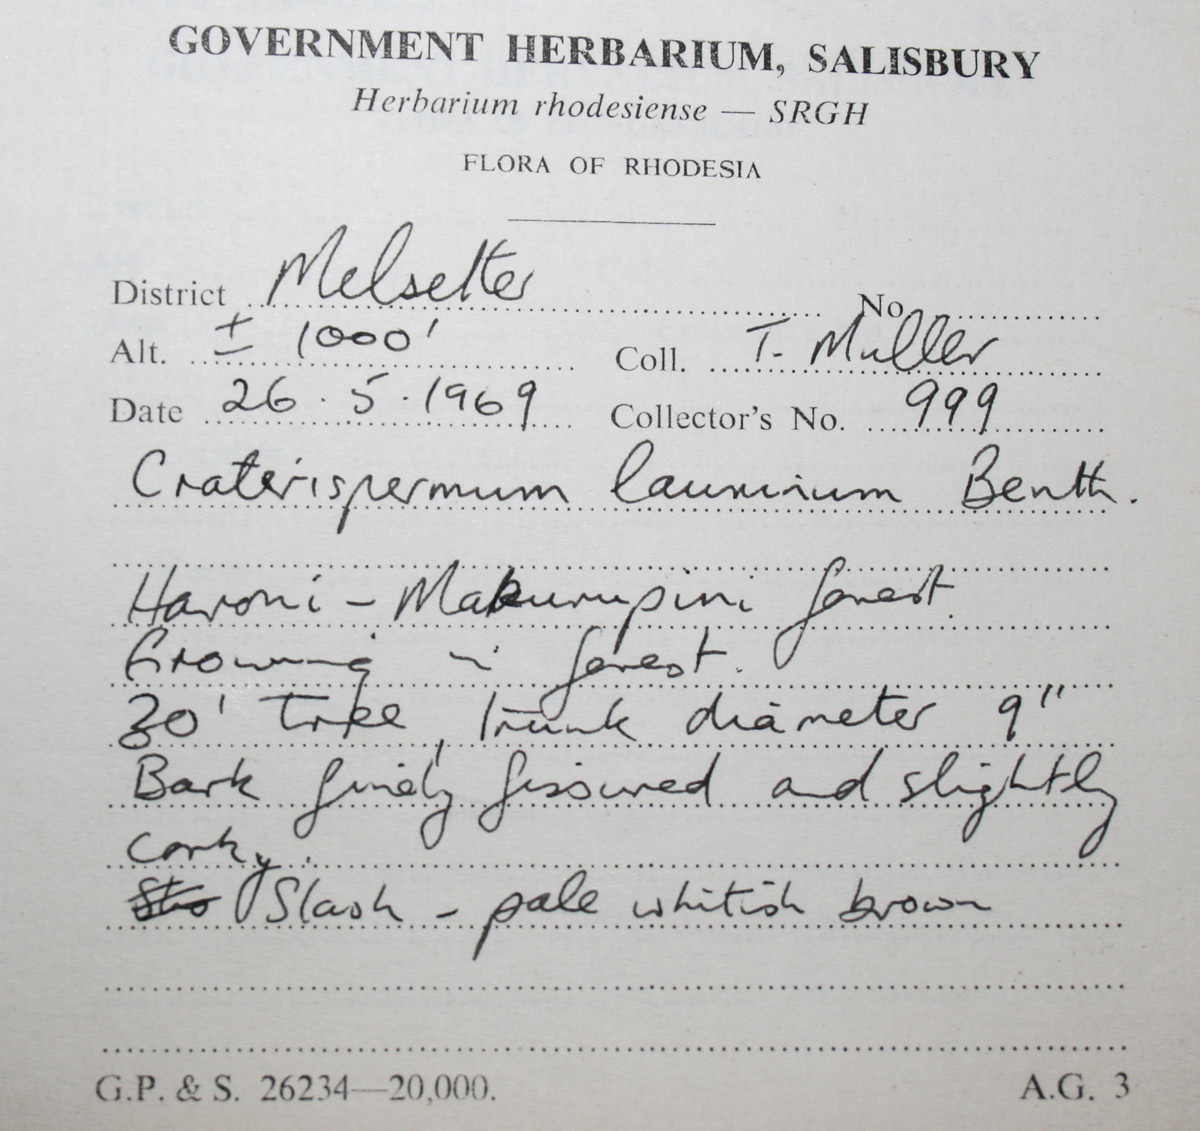 GOVERNMENT HERBARIUM, SALISBURY
Herbarium rhodesiense — SRGH
FLORA OF RHODESIA
District Melsetter No.
Alt. ± 1000' Coll. T. Muller
Date 26.5.1969 Collector's No. 999
Craterispermum laurinum Benth.
Haroni - Makurupini forest.
Growing in forest.
30' Tree, trunk diameter 9"
Bark finely fissured and slightly
corky.
Slash - pale whitish brown
G.P. & S. 26234—20,000. A.G. 3